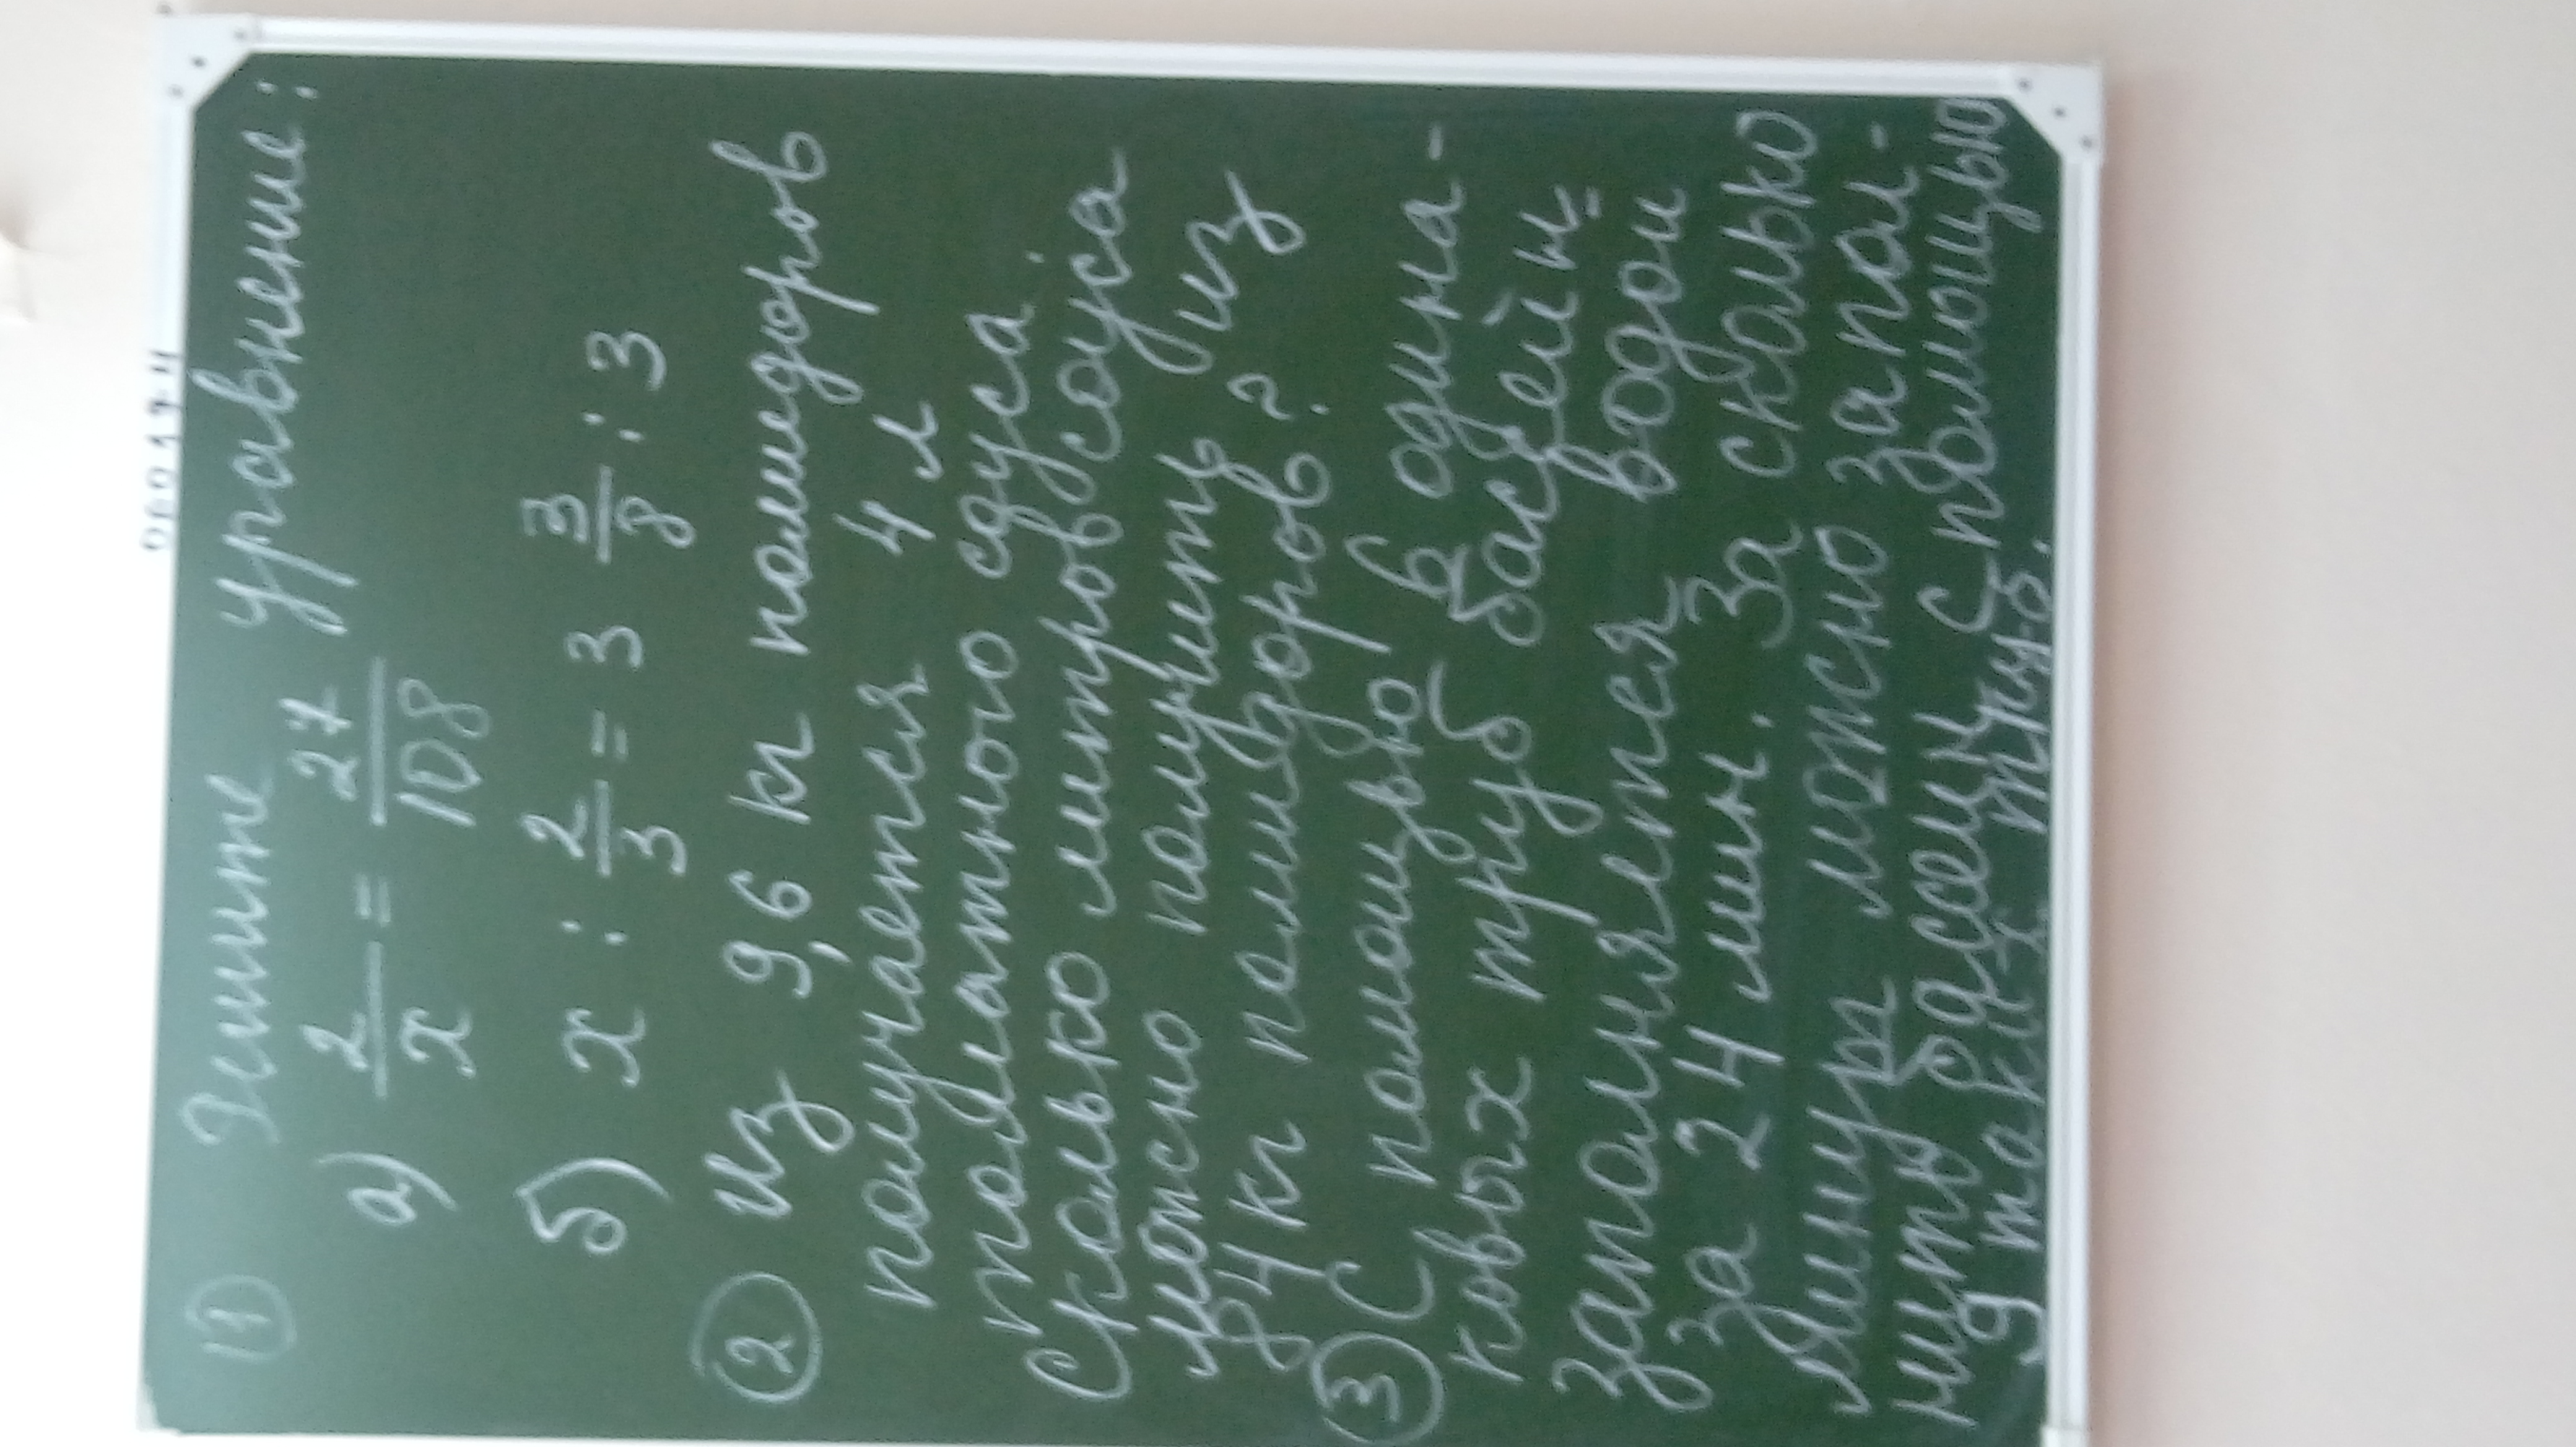 ① Решите уравнение:
а) 2/x = 27/108
б) x : 2/3 = 3 3/8 : 3
② Из 9,6 кг помидоров
получается 4 л
томатного соуса.
Сколько литров соуса
можно получить из
84 кг помидоров?
③ С помощью 6 одина-
ковых труб бассейн=
заполняется водой
за 24 мин. За сколько
минут можно запол-
нить бассейн с помощью
9 таких труб.